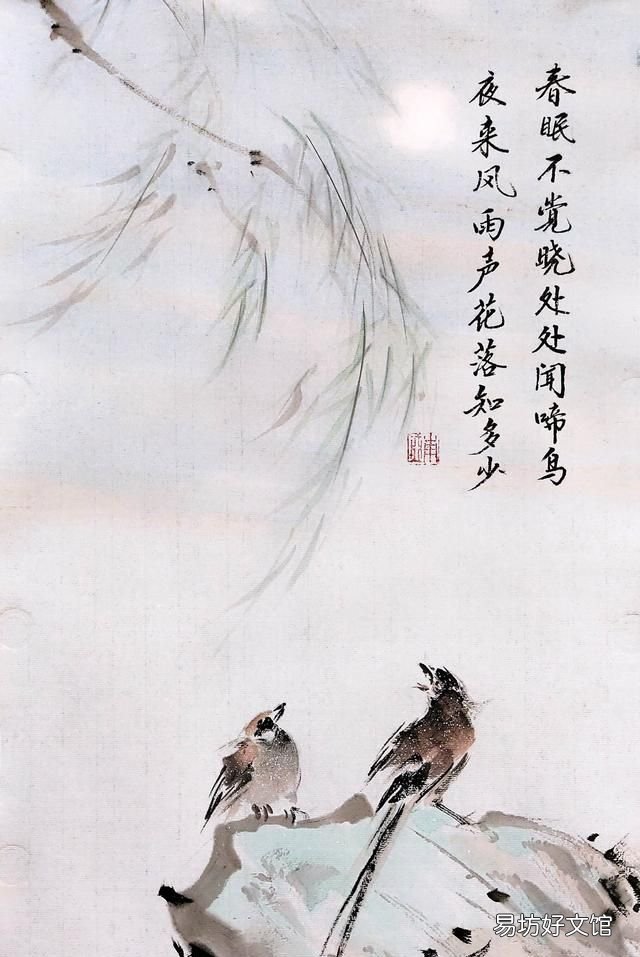 春眠不觉晓处处闻啼鸟
夜来风雨声花落知多少
易坊好文馆